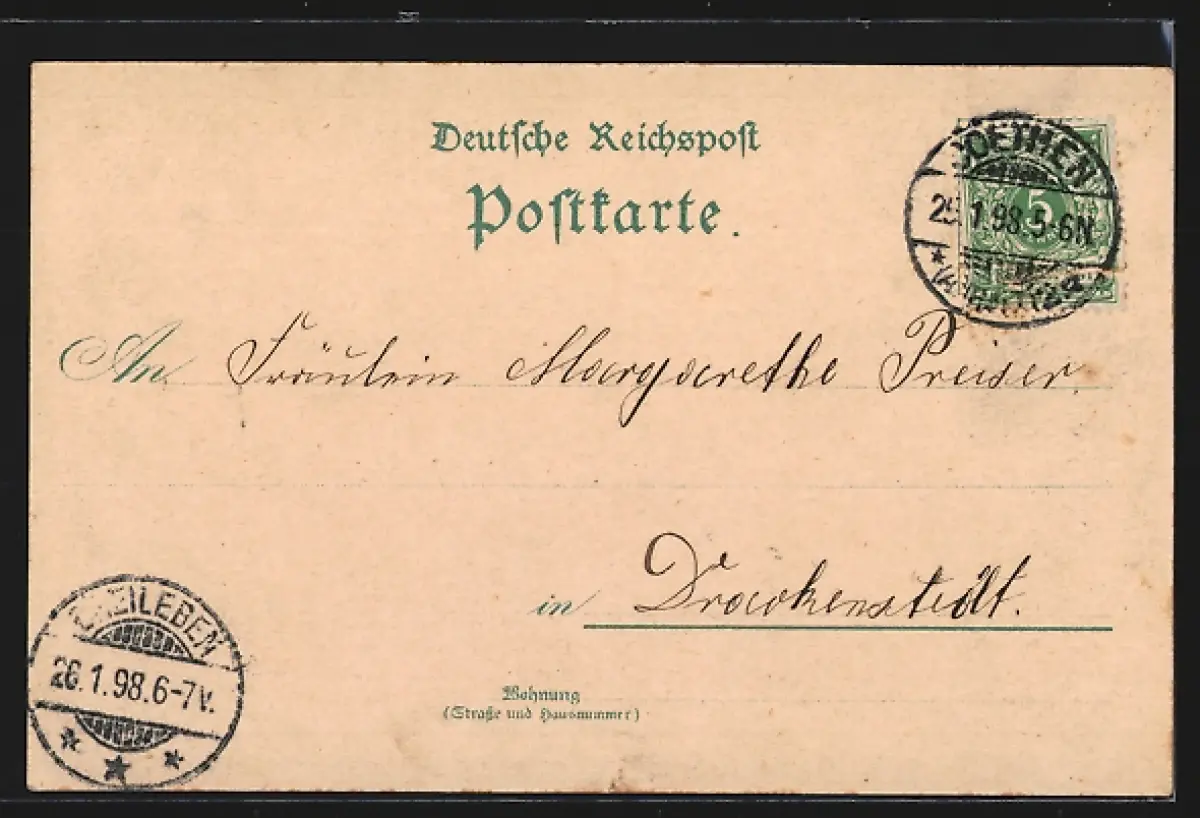 Deutsche Reichspost
Postkarte.
COETHEN
25.1.98.5-6N
5
An Fräulein Margarethe Preiser
in Drackenstedt.
EILEBEN
26.1.98.6-7V.
Wohnung
(Straße und Hausnummer)